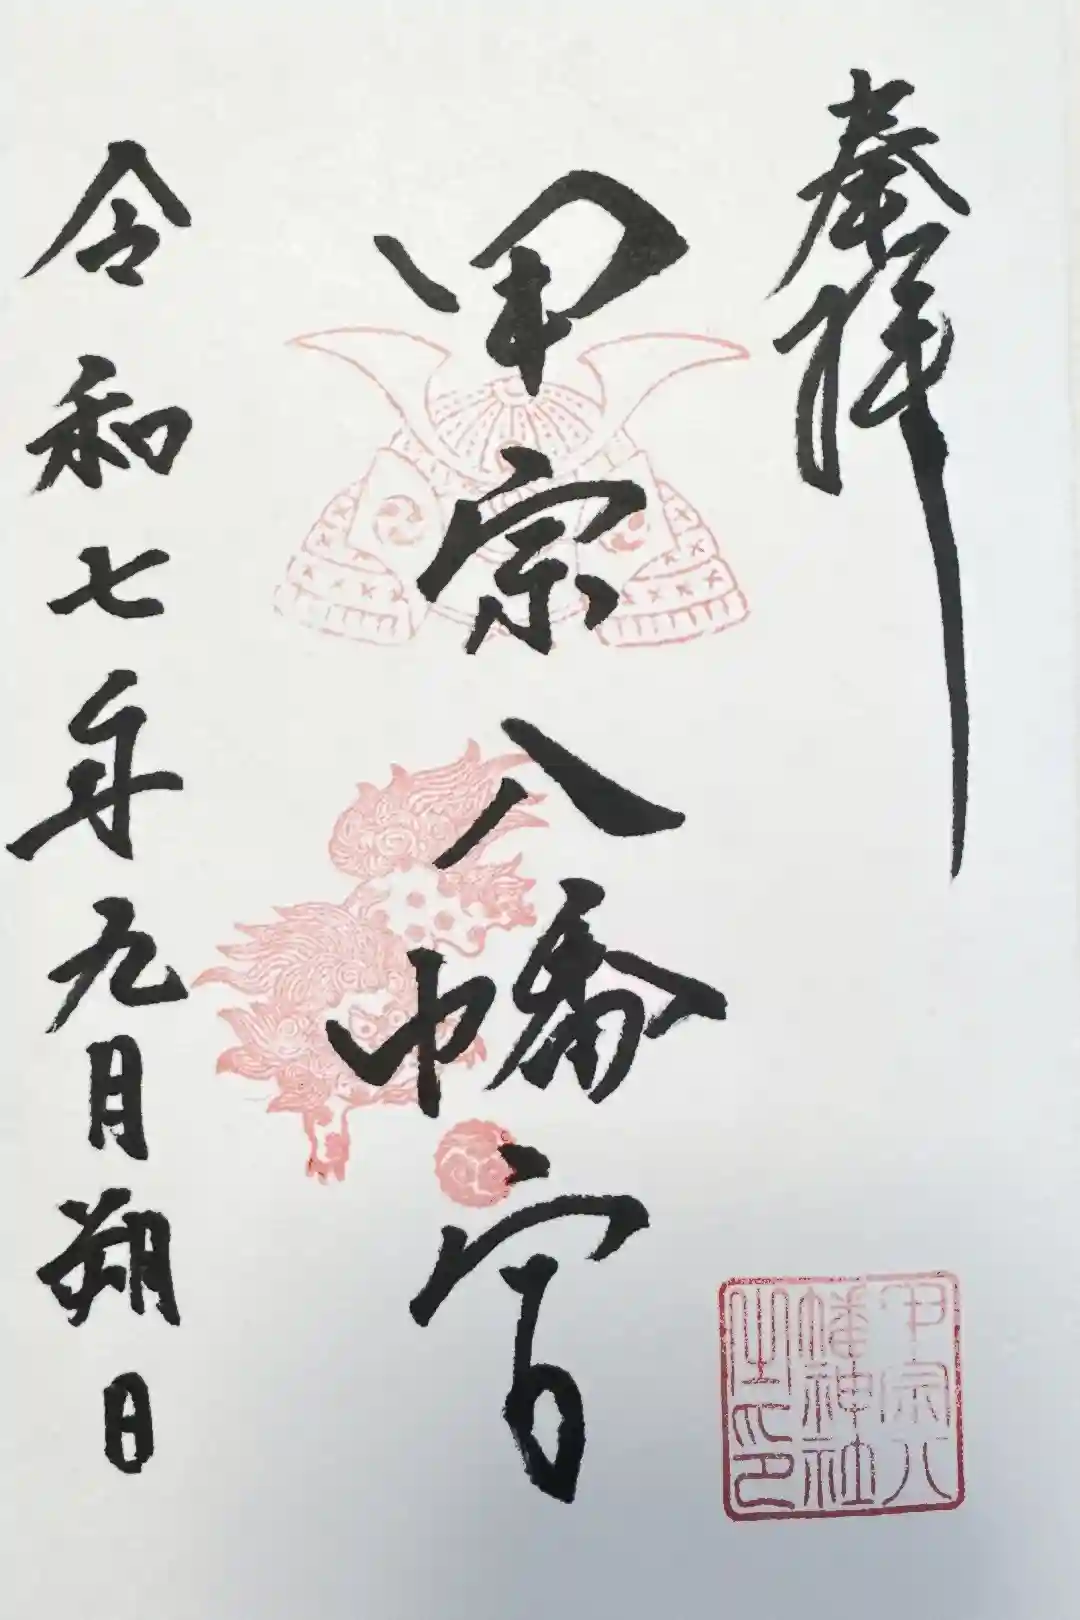 奉拝
甲宗八幡宮
令和七年九月朔日
甲宗八
幡神社
之印